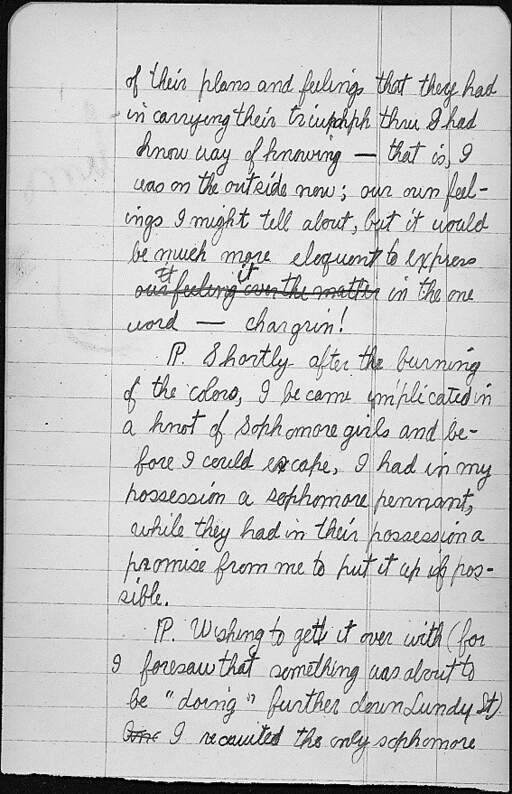 of their plans and feelings that they had
in carrying their triumph thru I had
know way of knowing — that is, I
was on the outside now; our own feel-
ings I might tell about, but it would
be much more eloquent to express
it
our feeling over the matter in the one
word — chargrin!
P. Shortly after the burning
of the colors, I became implicated in
a knot of Sophomore girls and be-
fore I could escape, I had in my
possession a sophomore pennant,
while they had in their possession a
promise from me to put it up if pos-
sible.
P. Wishing to get it over with (for
I foresaw that something was about to
be "doing" further down Lundy St)
I recruited the only sophomore